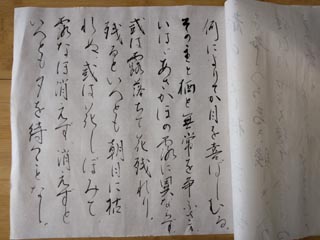 何によりてか目を喜ばしむる
その主と栖と無常を争ふさま
いはゞあさがほの露に異ならず
或は露落ちて花残れり
残るといへども朝日に枯
れぬ或は花しぼみて
露なほ消えず消えずと
いへども夕を待つことなし